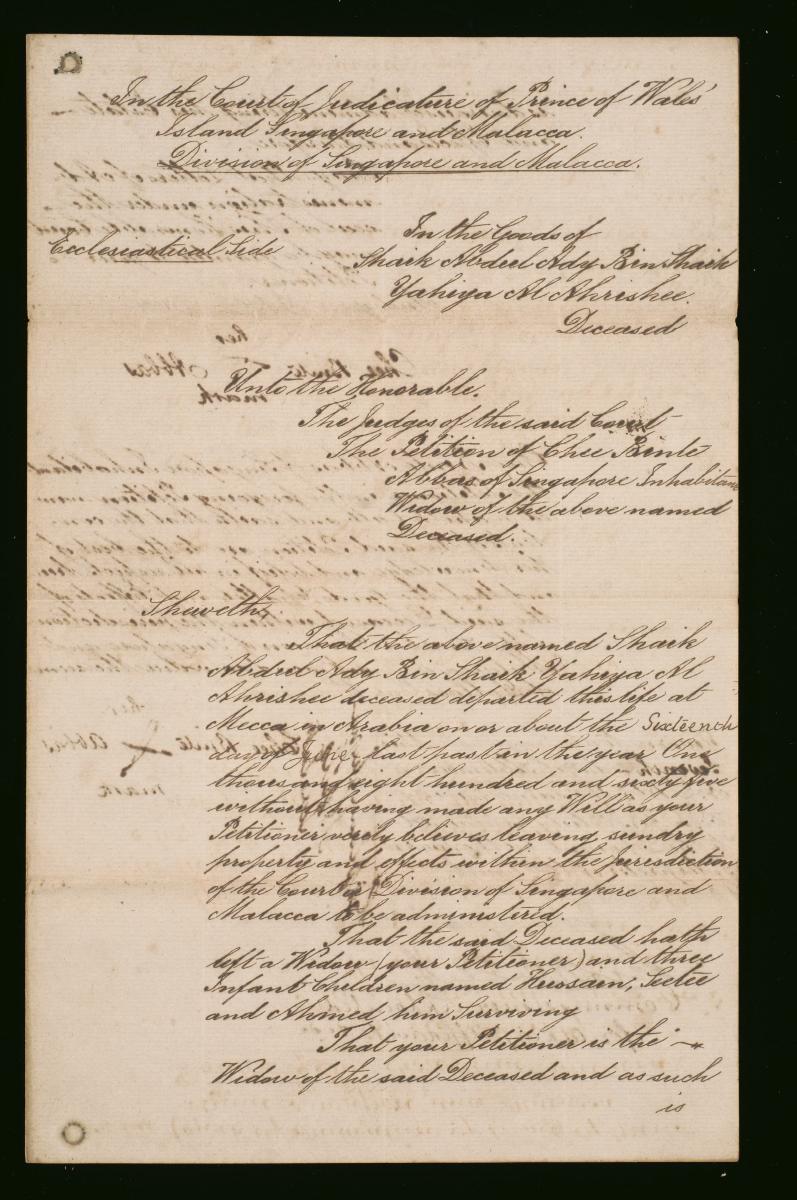 In the Court of Judicature of Prince of Wales'
Island Singapore and Malacca.
Division of Singapore and Malacca.
Ecclesiastical Side
In the Goods of
Shaik Abdul Ady Bin Shaik
Yahiya Al Ahrishee.
Deceased
Unto the Honorable.
The Judges of the said Court
The Petition of Chee Binte
Abbas of Singapore Inhabitant
Widow of the above named
Deceased.
Sheweth,
That the above named Shaik
Abdul Ady Bin Shaik Yahiya Al
Ahrishee deceased departed this life at
Mecca in Arabia on or about the Sixteenth
day of June last past in the year One
thousand eight hundred and sixty five
without having made any Will as your
Petitioner verily believes leaving sundry
property and effects within the Jurisdiction
of the Court Division of Singapore and
Malacca to be administered.
That the said Deceased hath
left a Widow (your Petitioner) and three
Infant Children named Hussain, Seetee
and Ahmed him Surviving
That your Petitioner is the
Widow of the said Deceased and as such
is